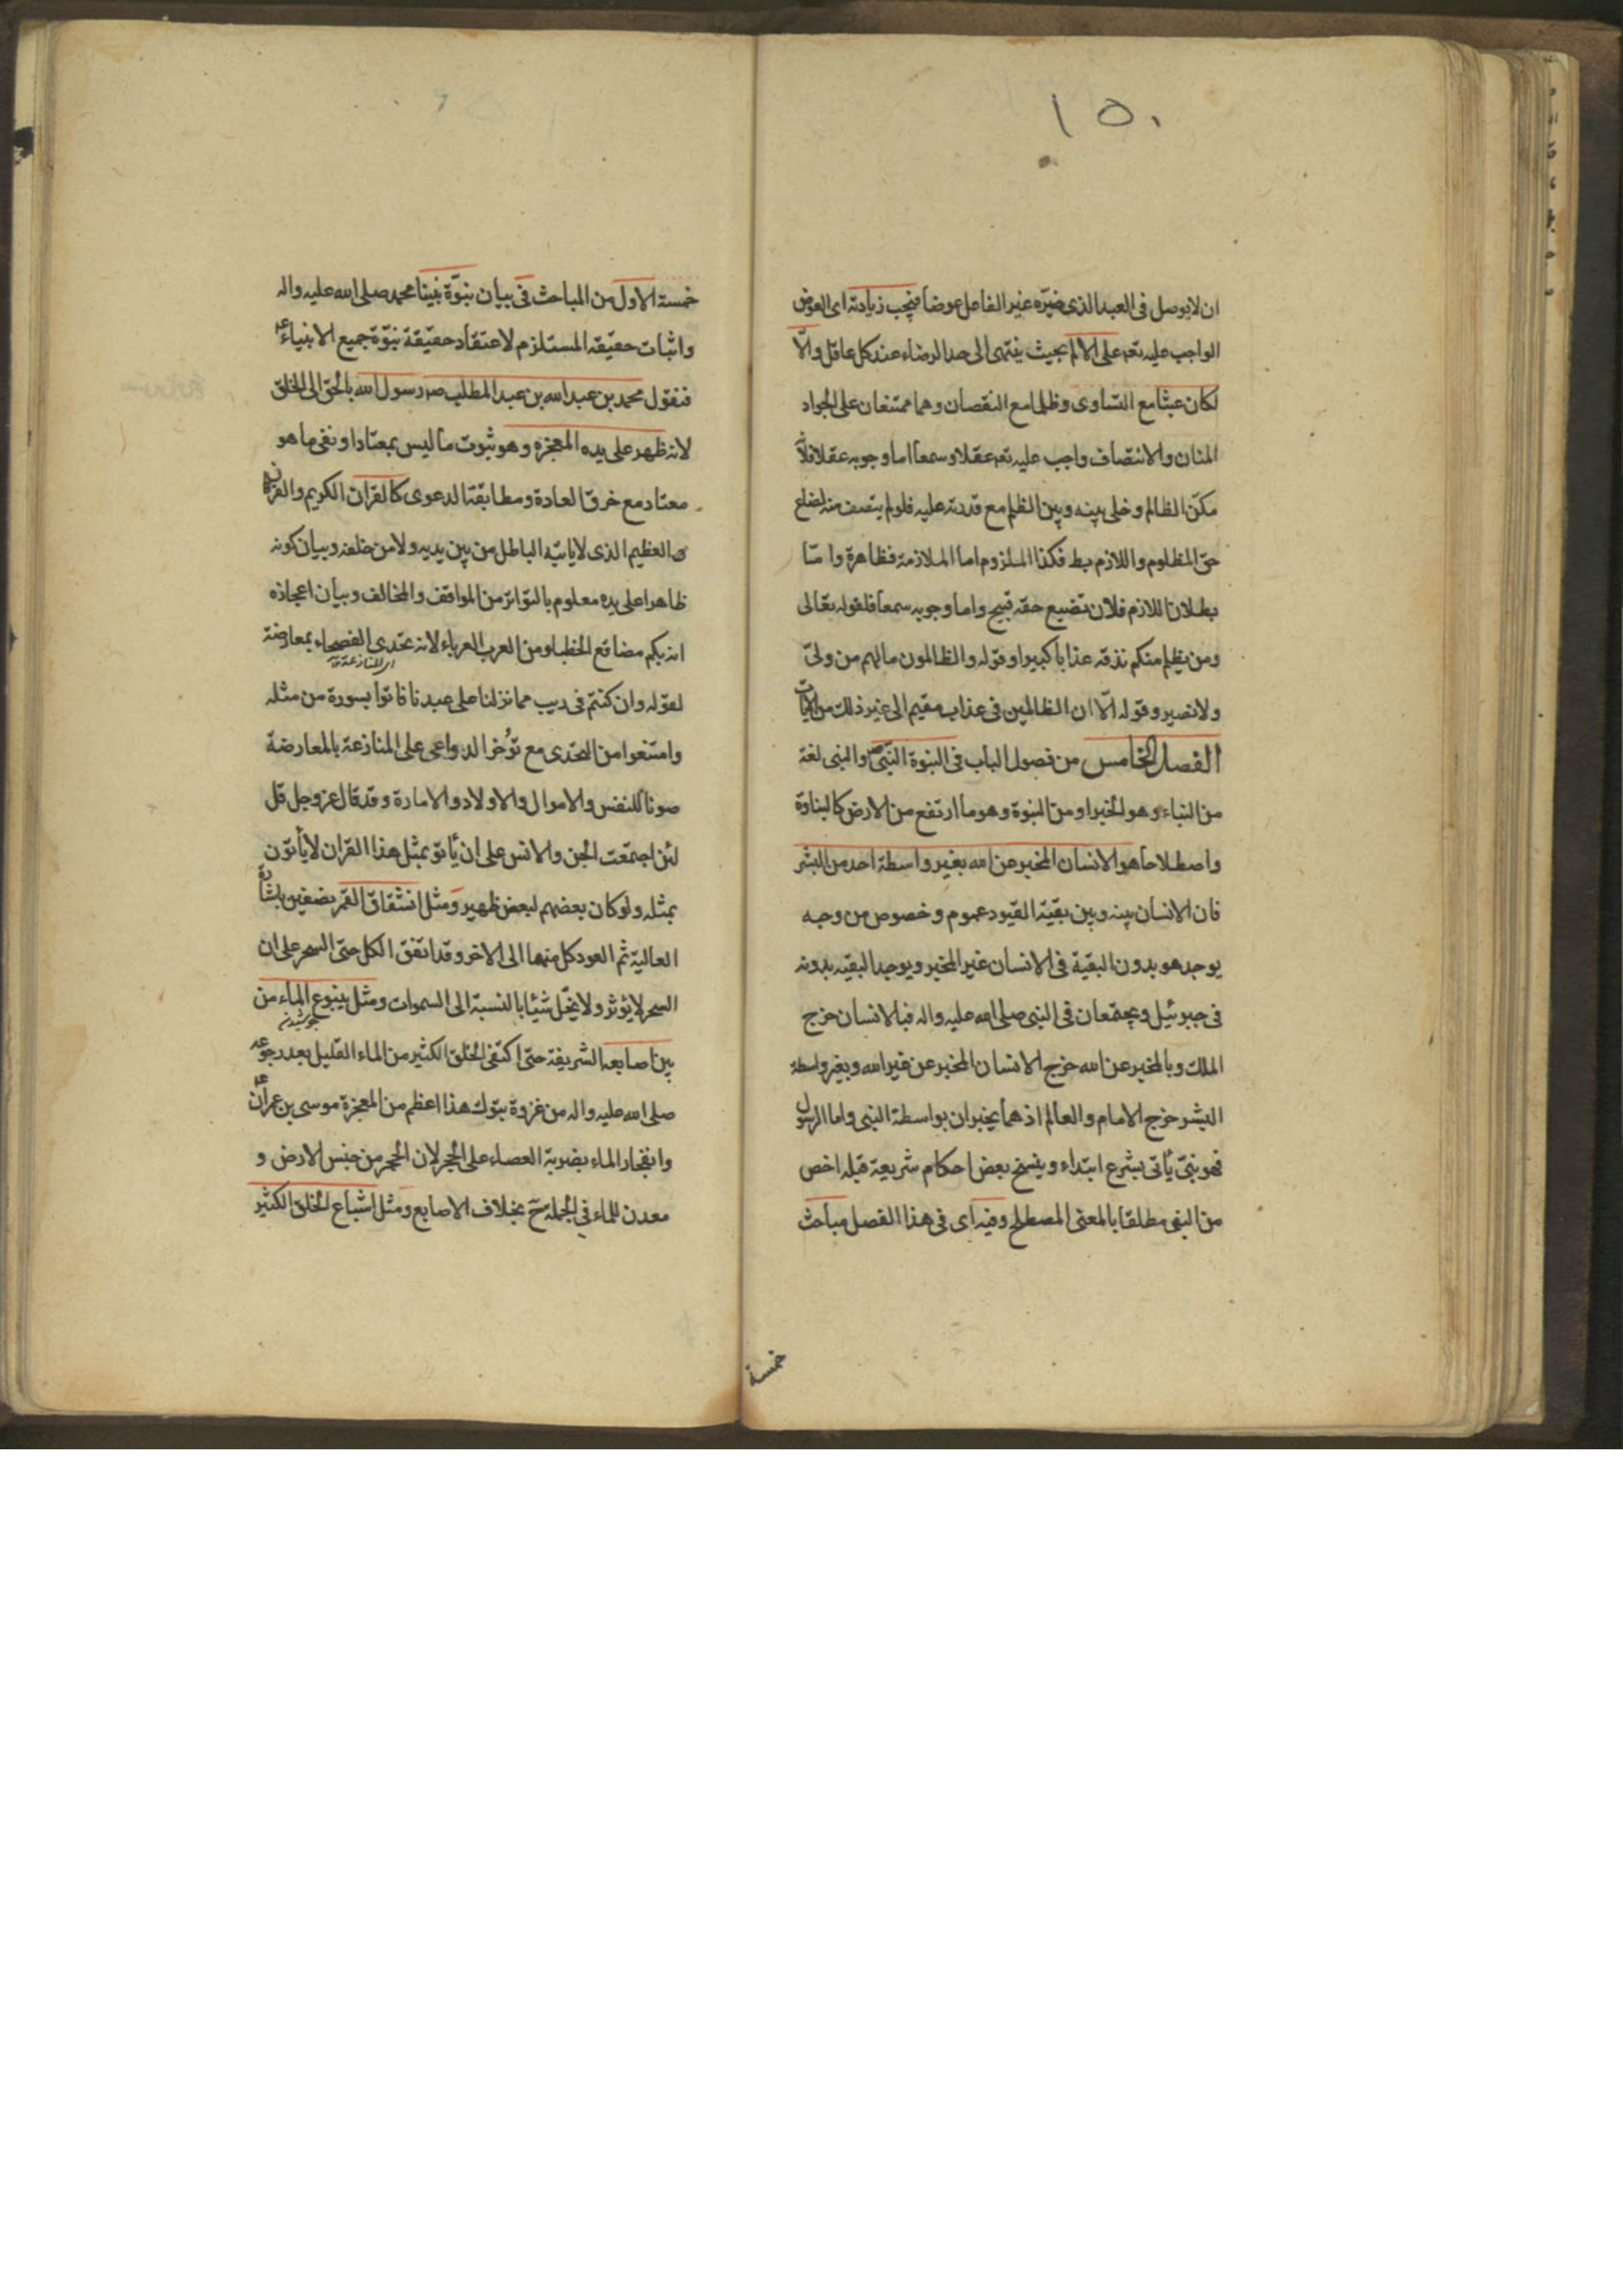 ١٥٠
ان لا يوصل فى العبد الذى ضرّه غير الفاعل عوضا فيجب زيادته اى العوض
الواجب عليه تعه على الالم بحيث ينتهى الى حد الرضاء عند كل عاقل والّا
لكان عبثا مع التساوى وظلما مع النقصان وهما ممتنعان على الجواد
المنان والانتصاف واجب عليه تعه عقلا وسمعا اما وجوبه عقلا فلانّه
مكّن الظالم وخلى بينه وبين الظلم مع قدرته عليه فلو لم ينتصف منه لضاع
حق المظلوم واللازم بط فكذا الملزوم اما الملازمة فظاهرة واما
بطلان اللازم فلان تضييع حقه قبيح واما وجوبه سمعا فلقوله تعالى
ومن يظلم منكم نذقه عذابا كبيرا وقوله والظالمون مالهم من ولىّ
ولا نصير وقوله الّا ان الظالمين فى عذاب مقيم الى غير ذلك من الايات
الفصل الخامس من فصول الباب فى النبوة النّبى والنبى لغة
من النباء وهو الخبر او من النبوة وهو ما ارتفع من الارض كالنباوة
واصطلاحا هو الانسان المخبر عن الله بغير واسطة احد من البشر
فان الانسان بينه وبين بقيّة القيود عموم وخصوص من وجه
يوجد هو بدون البقية فى الانسان غير المخبر ويوجد البقيه بدونه
فى جبرئيل ويجتمعان فى النبى صلى الله عليه واله فبالانسان خرج
الملك وبالمخبر عن الله خرج الانسان المخبر عن غير الله وبغير واسطة
البشر خرج الامام والعالم اذ هما يخبران بواسطة النبى واما الرسول
فهو نبىّ يأتى بشرع ابتداء وينسخ بعض احكام شريعة قبله اخص
من النبى مطلقا بالمعنى المصطلح وفيه اى فى هذا الفصل مباحث
خمسة
خمسة الاول من المباحث فى بيان نبوّة نبينا محمد صلى الله عليه واله
واثبات حقيقته المستلزم لاعتقاد حقيقة نبوّة جميع الانبياء ع
فنقول محمد بن عبد الله بن عبد المطلب ص رسول الله بالحق الى الخلق
لانه ظهر على يده المعجزه وهو ثبوت ما ليس بمعتاد او نفى ما هو
معتاد مع خرق العادة ومطابقة الدعوى كالقران الكريم والفرقان
العظيم الذى لا ياتيه الباطل من بين يديه ولا من خلفه وبيان كونه
ظاهرا على يده معلوم بالتواتر من المواقف والمخالف وبيان اعجازه
انه بكم مصاقع الخطباء من العرب العرباء لانه تحدى الفصحاء بمعارضة
لقوله وان كنتم فى ريب مما نزلنا على عبدنا فاتوا بسورة من مثله
وامتنعوا من التحدى مع توُخر الدواعى على المنازعة بالمعارضة
صونا للنفس والاموال والاولاد والامارة وقد قال عز وجل قل
لئن اجتمعت الجن والانس على ان يأتو بمثل هذا القران لا يأتون
بمثله ولو كان بعضهم لبعض ظهير ومثل انشقاق القمر بضفين باشارة
العالية ثم العود كل منهما الى الاخر وقد اتفق الكل حتى السحر على ان
السحر لا يؤثر ولا يخل شيئا بالنسبة الى السموات ومثل ينبوع الماء من
جوشيدن
بين اصابعه الشريفة حتى اكتفى الخلق الكثير من الماء القليل بعد رجوعه
صلى الله عليه واله من غزوة تبوك هذا اعظم من المعجزة موسى بن عمران ع
وانفجار الماء بضربة العصاء على الحجر لان الحجر من جنس الارض و
معدن للماء فى الجملة بخلاف الاصابع ومثل اشباع الخلق الكثير